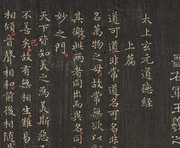 右軍王
太上玄元道德經
上篇
道可道非常道名可名非
名萬物之母故常無欲
其徼此兩者同出而異名同
妙之門
天下皆知美之為美斯惡
不善矣故有無相生難易
相傾音聲相和前後相隨